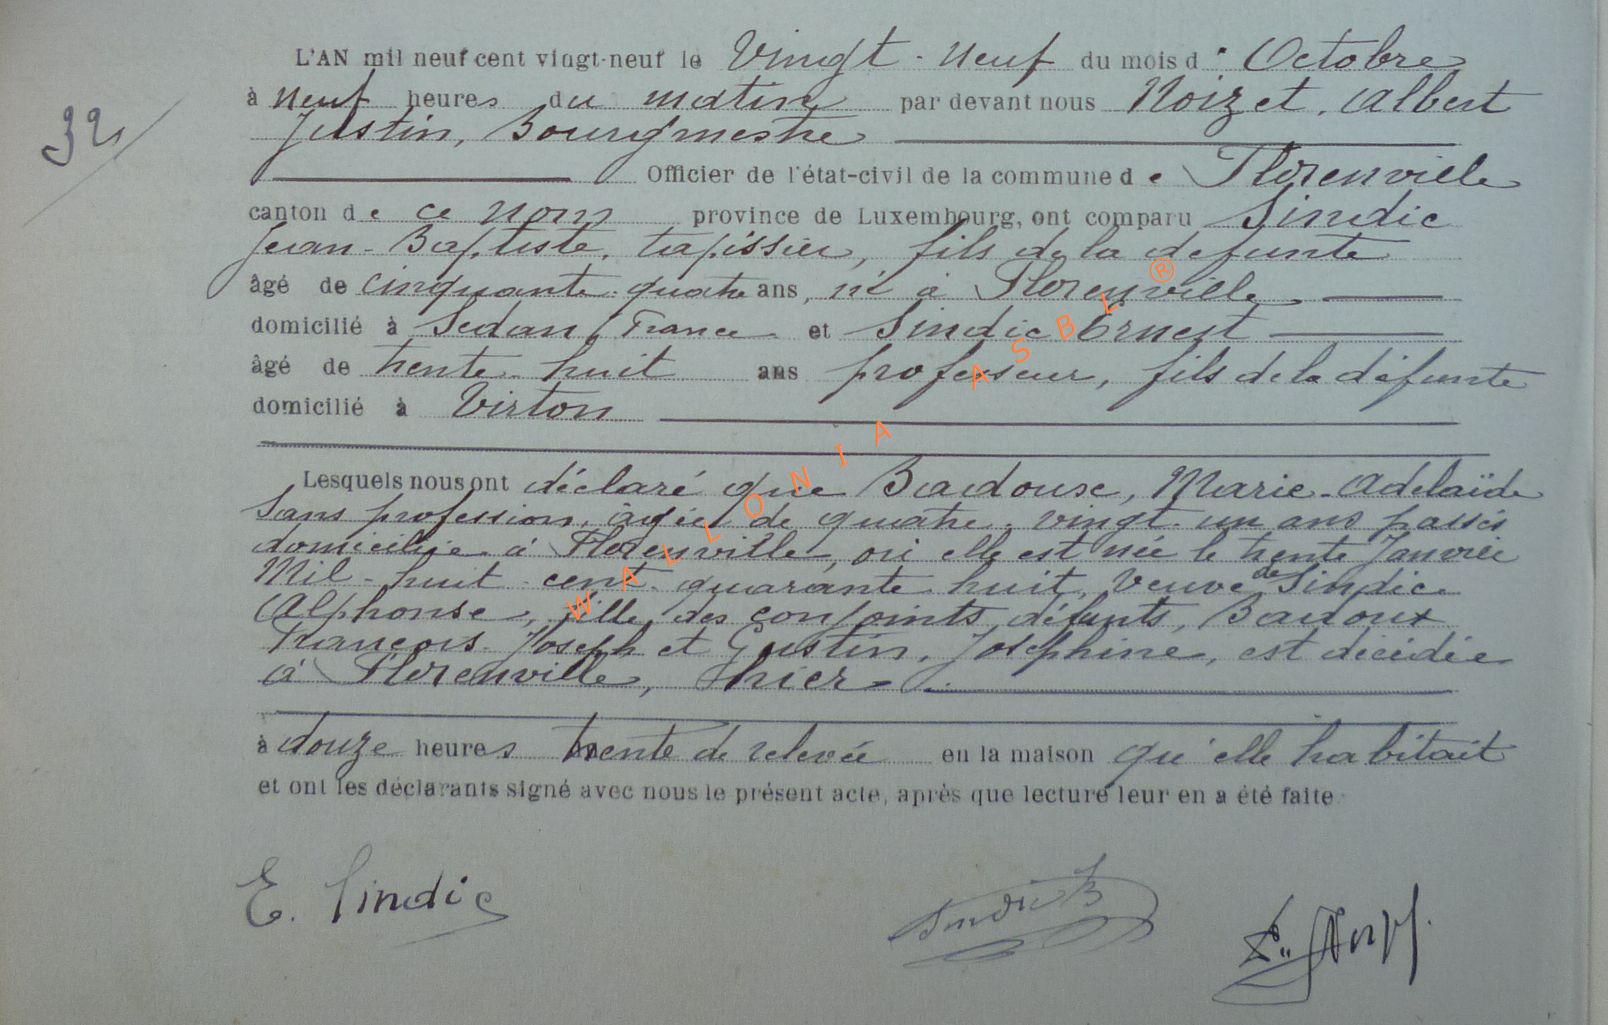 L'AN mil neuf cent vingt-neuf le Vingt-neuf du mois d'Octobre
à neuf heures du matin par devant nous Noizet, Albert
32
Justin, Bourgmestre
Officier de l'état-civil de la commune de Florenville
canton de ce nom province de Luxembourg, ont comparu Sindic
Jean-Baptiste, tapissier, fils de la défunte
âgé de cinquante-quatre ans, né à Florenville
domicilié à Sedan, France et Sindic Ernest
âgé de trente-huit ans professeur, fils de la défunte
domicilié à Virton
Lesquels nous ont déclaré que Baudoux, Marie-Adelaïde
sans profession, âgée de quatre-vingt-un ans passés
domiciliée à Florenville, où elle est née le trente Janvier
Mil-huit-cent quarante huit, Veuve de Sindic
Alphonse, fille des conjoints défunts, Baudoux
François-Joseph et Gustin, Joséphine, est décédée
à Florenville, hier
à douze heures trente de relevée en la maison qu'elle habitait
et ont les déclarants signé avec nous le présent acte, après que lecture leur en a été faite.
E. Sindic
Sindic B
WALLONIA ASBL ®